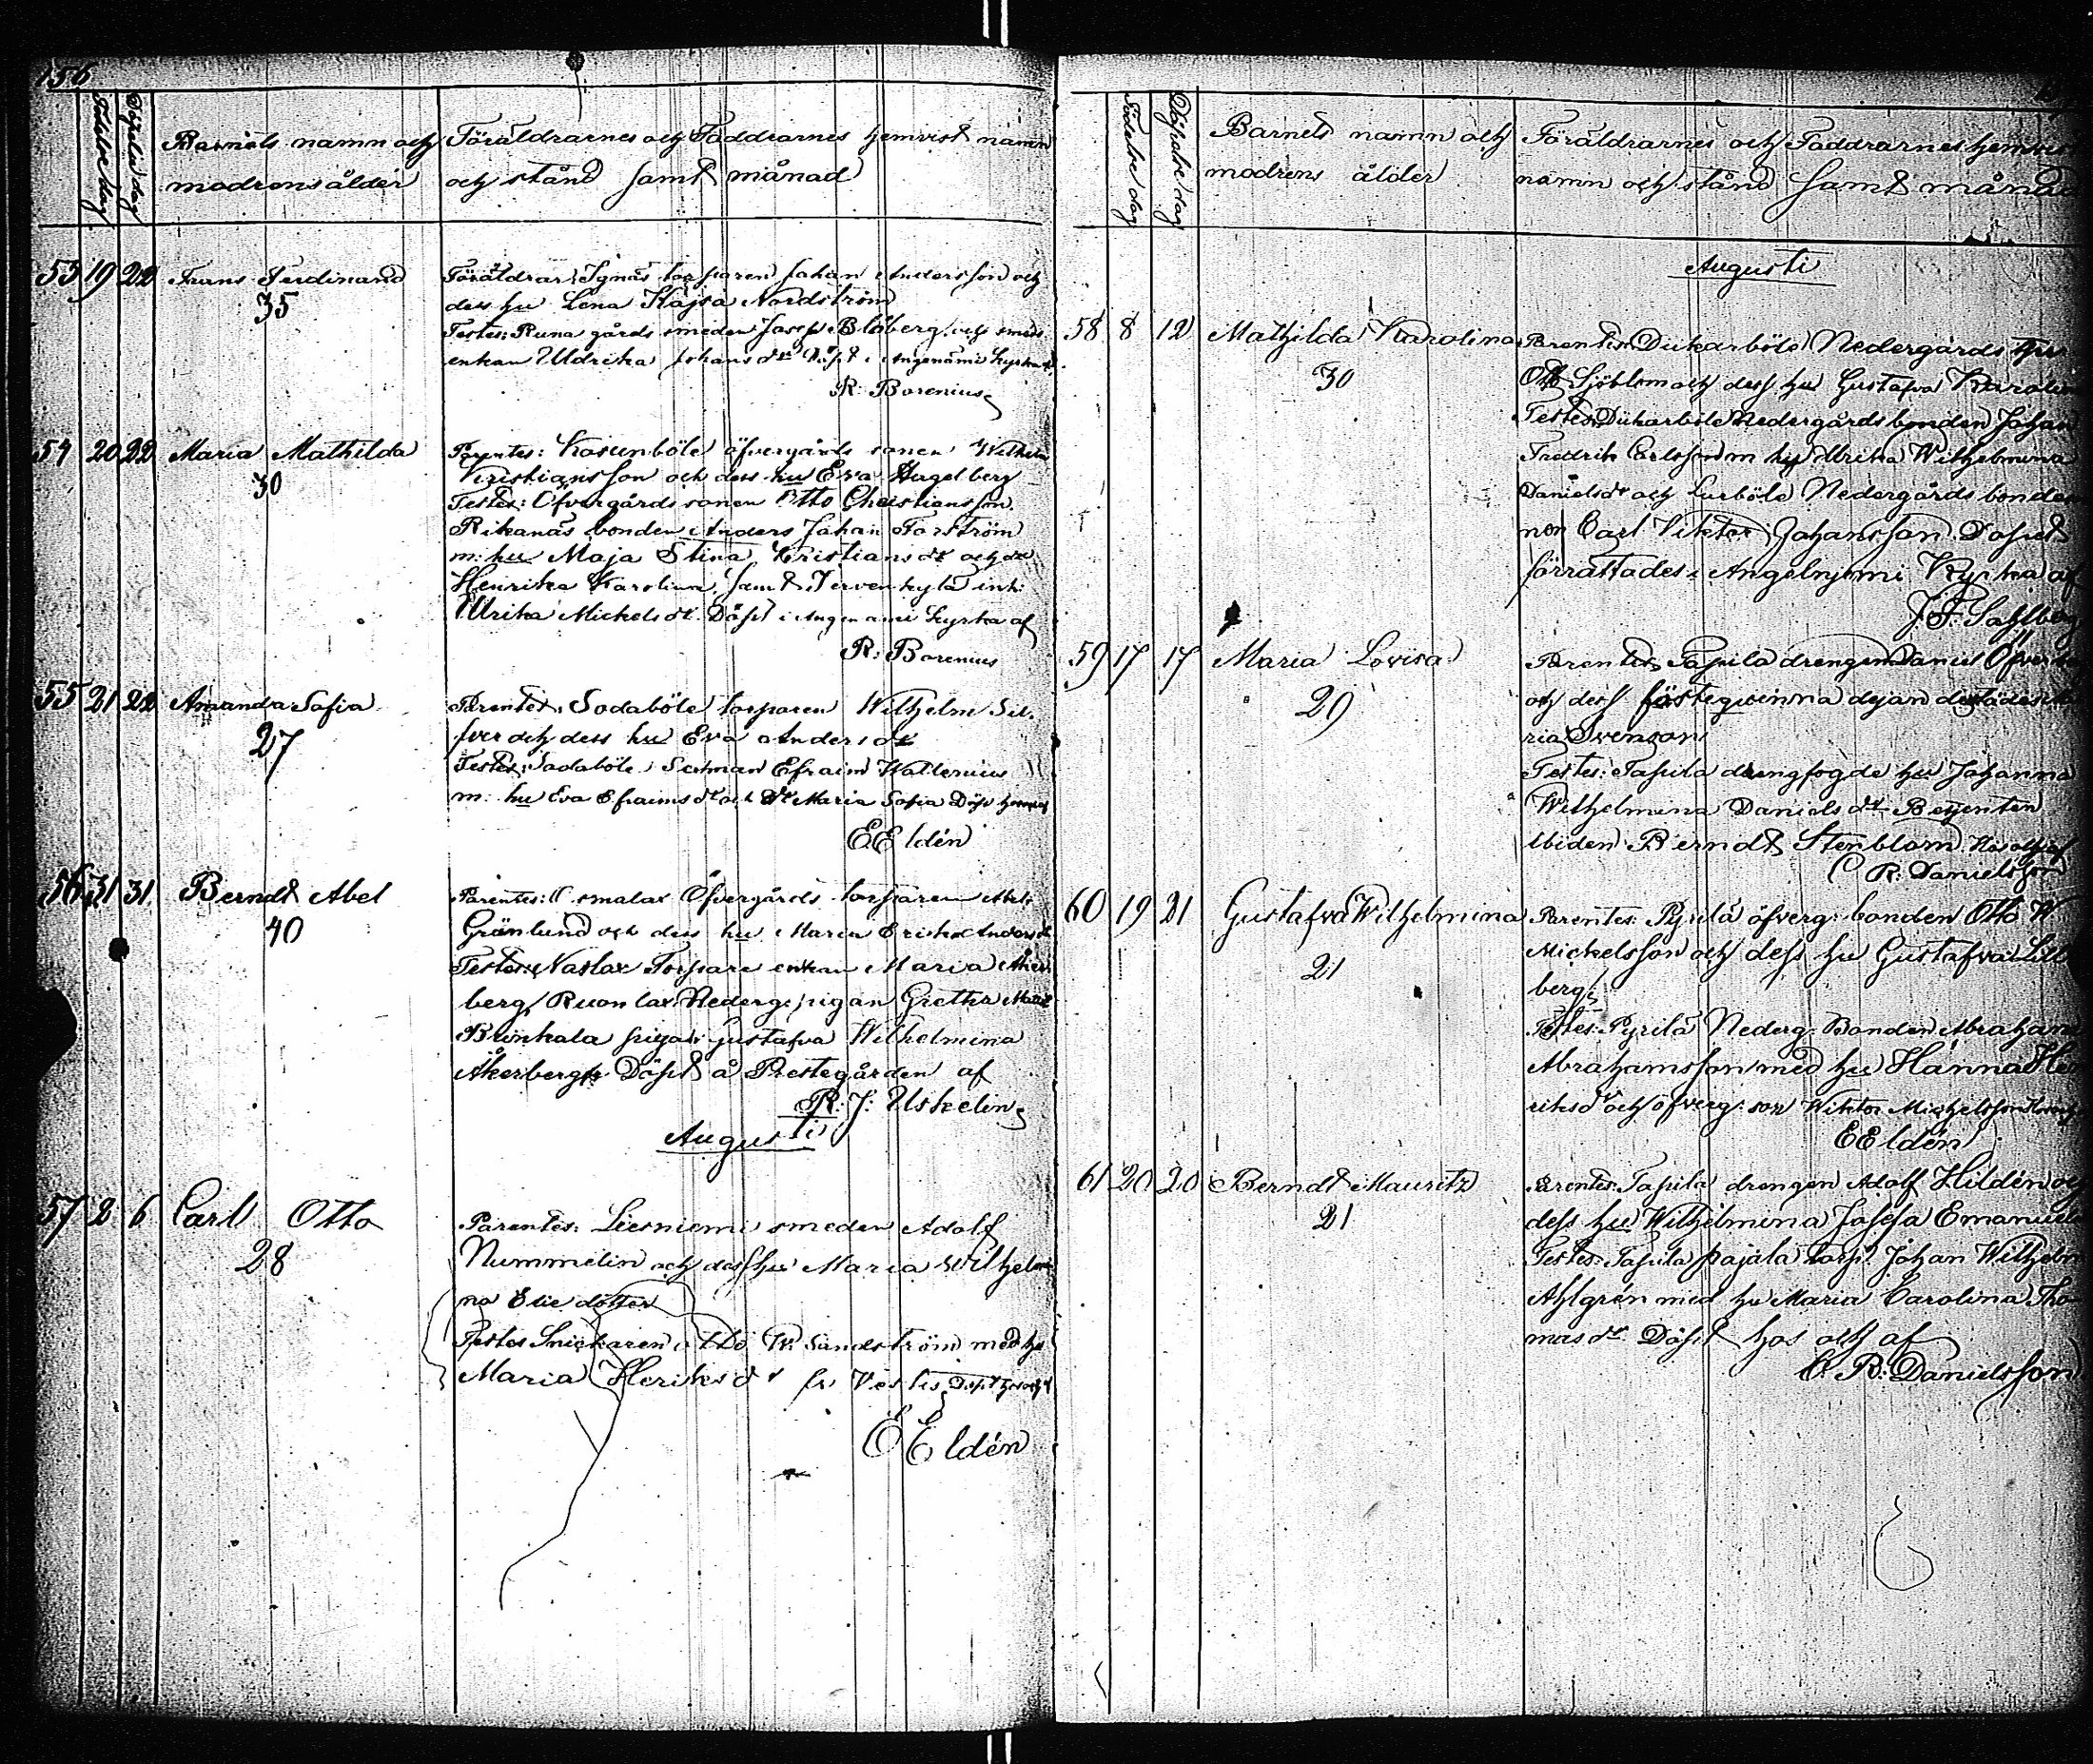 156
Födelse dag
Döpelse dag
Barnets namn och
modrens ålder
Föräldrarnes och Faddrarnes hemvist namn
och stånd samt månad
53 19 22 Frans Ferdinand
35
Föräldrar: torparen Johan Andersson och
dess hu Lena Kajsa Nordström
Testes: Runa gårds smeden Josef Blåberg och smeds
enkan Uldrika Johans dr Döpt i Angenämi kyrka
R: Borenius
54 20 22 Maria Mathilda
30
Parentes: Kasunböle öfvergårds sonen Wilhelm
Kristiansson och dess hu Eva Hagelberg
Testes: Öfvergårds sonen Otto Christiansson
Rikanäs bonden Anders Johan Forström
m: hu Maja Stina Kristians dr och dr
Henrika Karolina samt Jervenkylä inh:
Ulrika Mickels dr. Döpt i kyrka af
R: Borenius
55 21 22 Amanda Sofia
27
Parentes: Sodaböle torparen Wilhelm Sil-
fver och dess hu Eva Anders dr
Testes: Sodaböle Efraim Wallenius
m: hu Eva Efraims dr och dr Maria Sofia Döpt
E E ldén
56 31 31 Berndt Abel
40
Parentes: Öfvergårds torparen Abel
Grönlund och dess hu Maria Erika Anders dr
Testes: Torpare enkan Maria Åker-
berg, Ruonlax Nederg: pigan Gretha
Brinkala pigan Gustafva Wilhelmina
Åkerberg Döpt å Prestegården af
R: J: Uskelin
Augusti
57 2 6 Carl Otto
28
Parentes: Liesniemi smeden Adolf
Nummelin och dess hu Maria Wilhelmi
na Elie dotter
Testes Snickaren Otto W. Sandström med hu
Maria Heriks dr fr Vestis Döpt hos och af
E E ldén
Födelse dag
Döpelse dag
Barnets namn och
modrens ålder
Föräldrarnes och Faddrarnes hemvist
namn och stånd samt månad
Augusti
58 8 12 Mathilda Karolina
30
Parentes Dukarböle Nedergårds
Otto Sjöblom och dess hu Gustafva Karolin
Testes: Dukarböle Nedergårds bonden Johan
Fredrik Carlsson m hu Ulrika Wilhelmina
Daniels dr och Lurböle Nedergårds bonde
son Carl Viktor Johansson. Döpelse
förrättades i Angelnjemi Kyrka af
J. F. Sahlberg
59 17 17 Maria Lovisa
29
Parentes: Tapila drengen Daniel
och dess fästeqvinna dejan
ria Svenson
Testes: Tapila drengfogde hu Johanna
Wilhelmina Daniels dr Betjenten
ibiden Berndt Stenblom Hos och af
C R. Danielsson
60 19 21 Gustafva Wilhelmina
21
Parentes: Pyrilä öfverg: bonden Otto W
Mickelsson och dess hu Gustafva Lill
berg
Testes: Pyrilä Nederg. Bonden Abraham
Abrahamsson med hu Hanna Hen
riks dr och öfverg: son Wiktor Michelsson
E E ldén
61 20 20 Berndt Mauritz
21
Parentes: Tapila drengen Adolf Hildén och
dess hu Wilhelmina Josefa Emanuels
Testes: Tapila pajala torp: Johan Wilhelm
Ahlgrén med hu Maria Carolina Tho
mas dr. Döpt hos och af
C. R. Danielsson